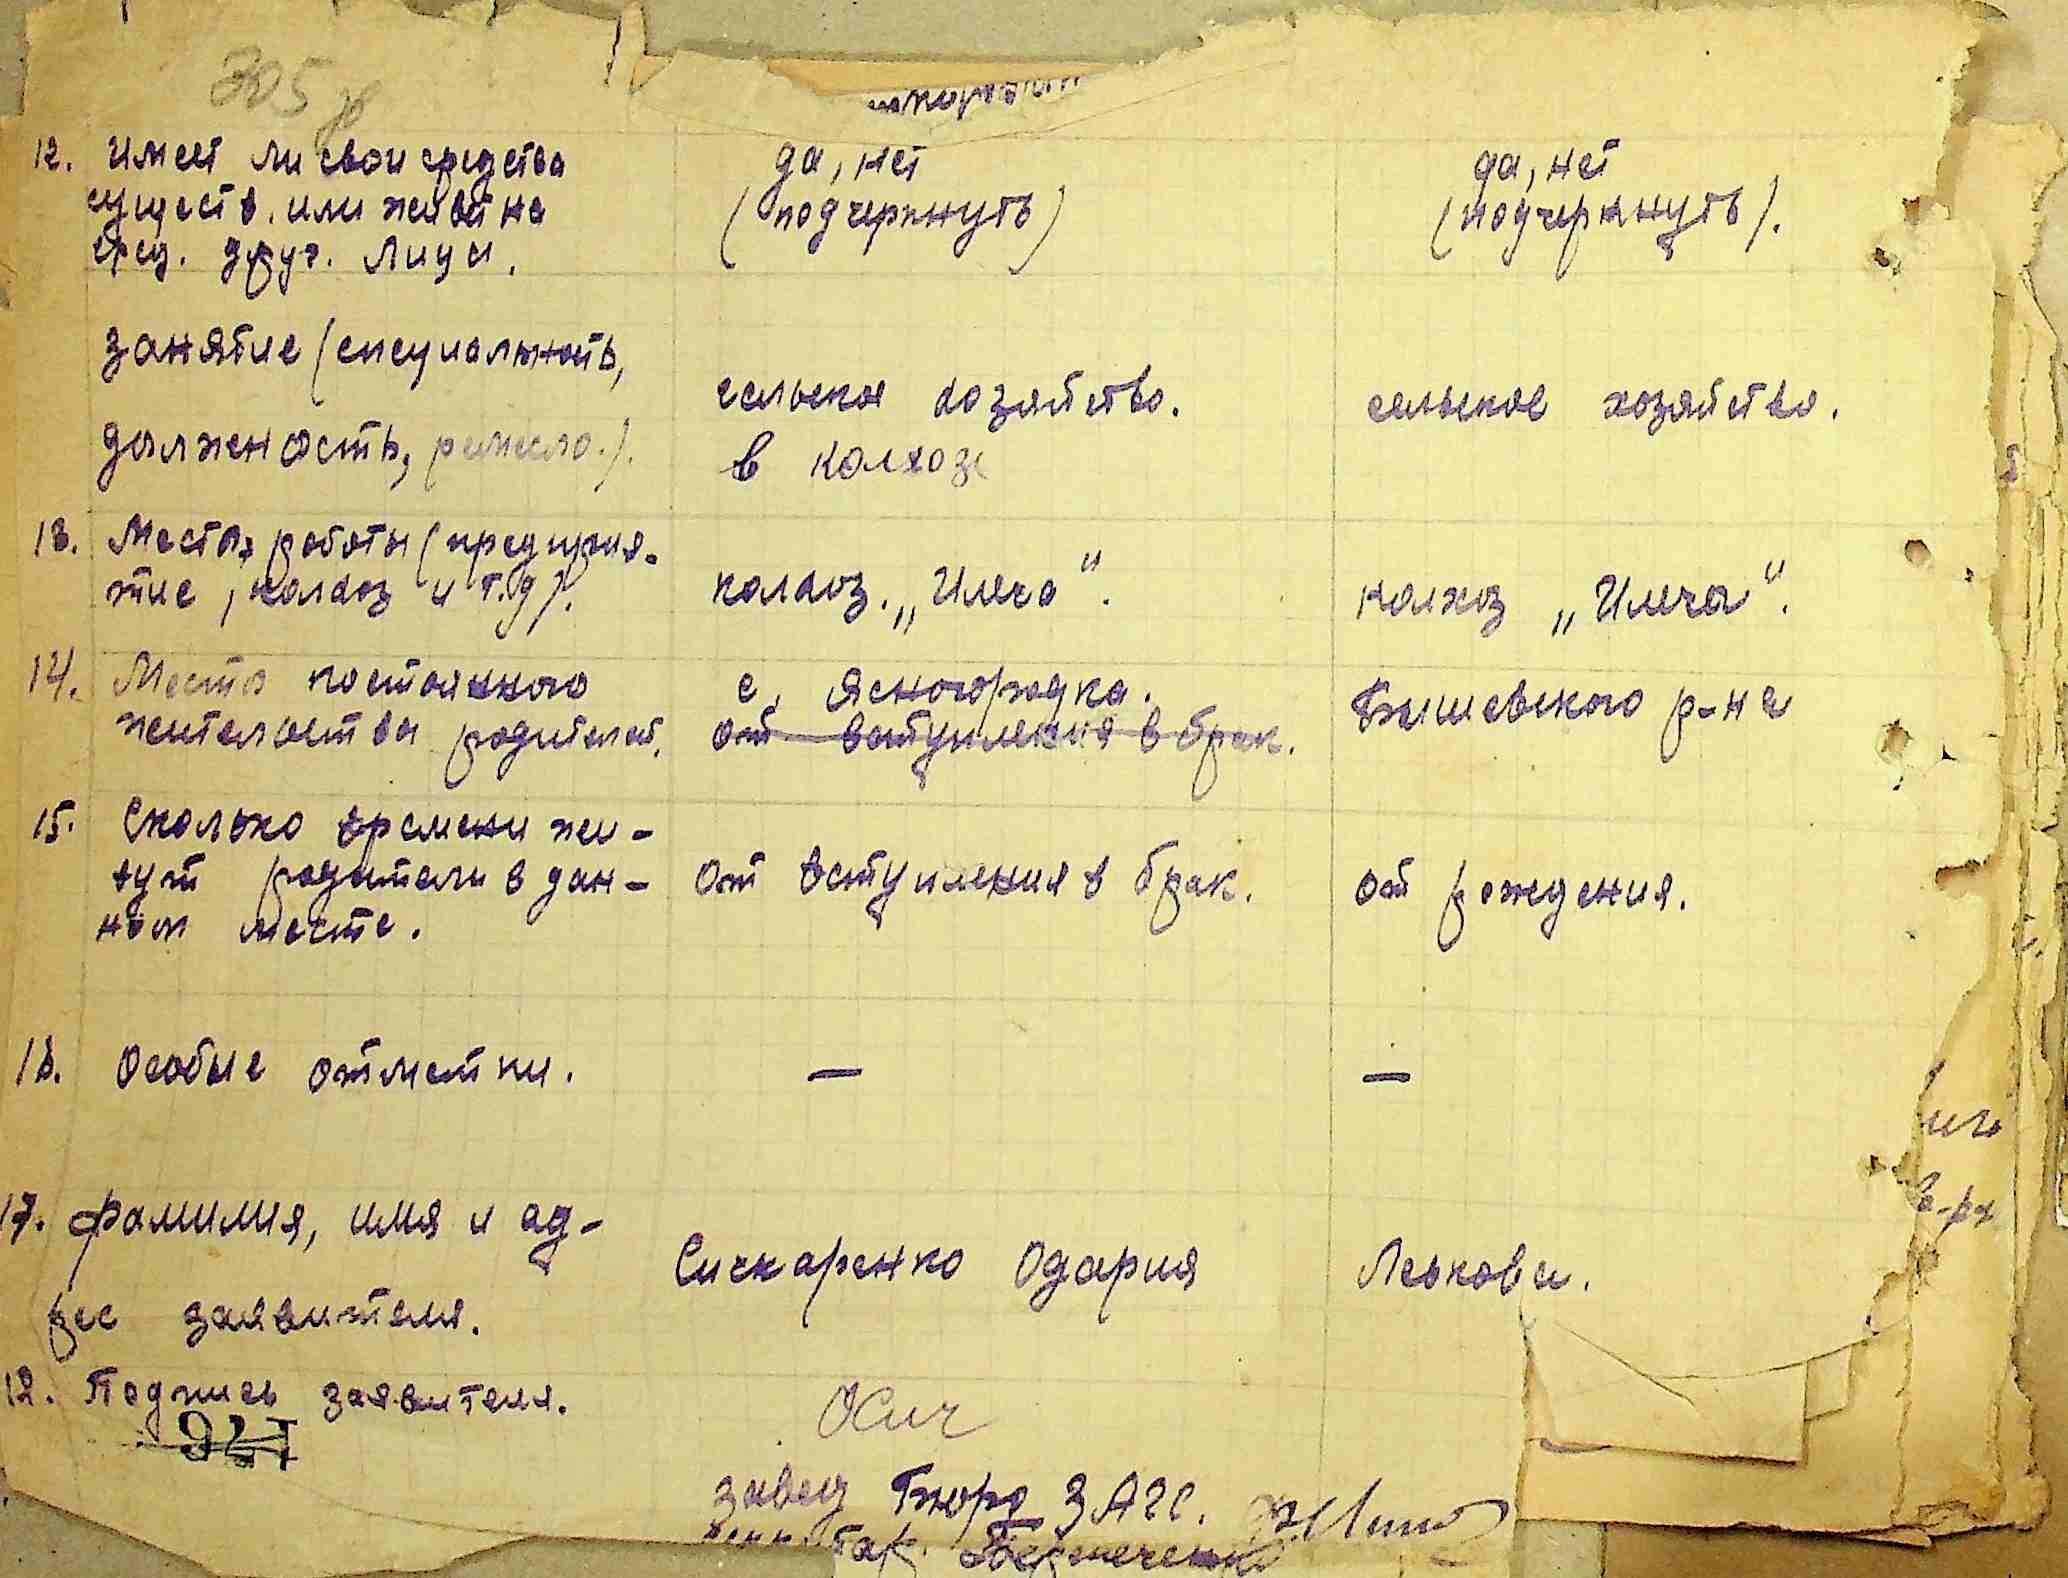 305
12. Имеет ли свои средства
существ. или живет на
сред. друг. лица.
да, нет
(подчеркнуть)
да, нет
(подчеркнуть).
занятие (специальность,
должность, ремесло.).
сельское хозяйство.
в колхозе
сельское хозяйство.
13. Место работы (предприя-
тие, колхоз и т.д).
колхоз. „Илича".
колхоз „Илича".
14. Место постоянного
жительства родителей.
с. Ясногородка.
от вступления в брак.
Бышевского р-на
15. Сколько времени жи-
вут родители в дан-
ном месте.
от вступления в брак.
от рождения.
16. Особые отметки.
—
—
17. фамилия, имя и ад-
рес заявителя.
Сичкаренко Одария
Левкова.
12. Подпись заявителя.
ОСич
завед Бюро ЗАГС.